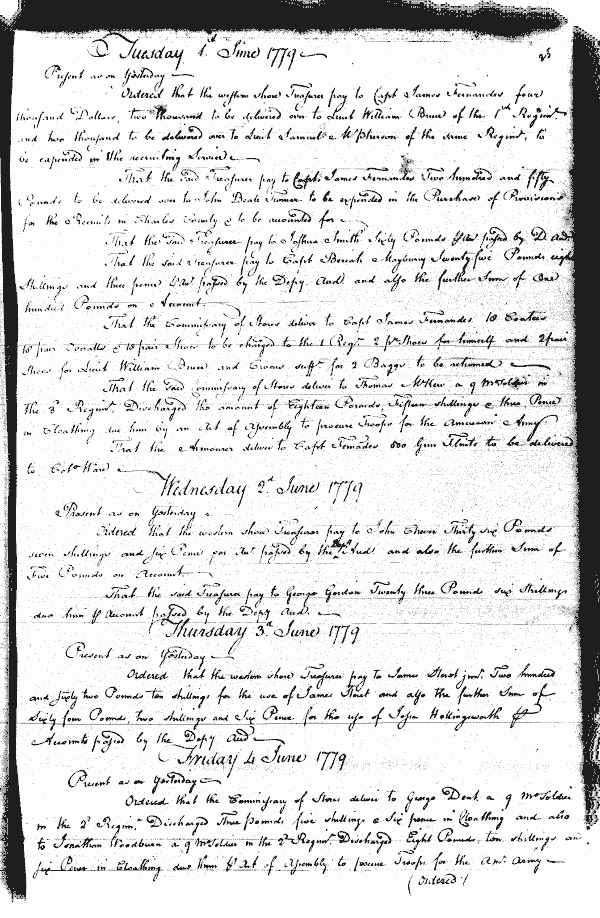 Tuesday 1st June 1779
Present as on Yesterday
Ordered that the western shore Treasurer pay to Capt James Fernandes four
thousand Dollars, two thousand to be delivered over to Lieut William Bruer of the 1st Regimt
and two thousand to be delivered over to Lieut Samuel McPherson of the same Regimt, to
be expended in the recruiting Service
That the said Treasurer pay to Capt James Fernandes Two hundred and fifty
Pounds to be delivered over to John Beale Turner to be expended in the Purchase of Provisions
for the Recruits in Charles County & to be accounted for
That the said Treasurer pay to Joshua Smith Sixty Pounds P Acct passed by D. Aud
That the said Treasurer pay to Capt Beriah Maybury Twenty five Pounds eight
Shillings and three pence P Acct passed by the Depy. Aud and also the further Sum of One
hundred Pounds on Account.
That the Commissary of Stores deliver to Capt James Fernandes 18 Coatees
18 pair Overalls & 18 pair Shoes to be charged to the 1 Regt 2 pr Shoes for himself and 2 pair
Shoes for Lieut William Bruer and Crocus sufft for 2 Baggs to be returned
That the said Commissary of Stores deliver to Thomas McKew a 9 Mo Soldier in
the 3d Regimt. Discharged the amount of Eighteen Pounds, Fifteen shillings & three Pence
in Cloathing due him by an Act of Assembly to procure Troops for the American Army
That the Armourer deliver to Capt Fernandes 500 Gun Flints to be delivered
to Colo Ware
Wednesday 2d June 1779
Present as on Yesterday
Ordered that the western shore Treasurer pay to John Chever Thirty six Pounds
seven shillings and six Pence per Acct passed by the Depy Aud. and also the further Sum of
Five Pounds on Account
That the said Treasurer pay to George Gordon Twenty three Pound six Shillings
due him P Account passed by the Depy Aud.
Thursday 3d June 1779
Present as on Yesterday
Ordered that the western shore Treasurer pay to James Steret junr. Two hundred
and sixty two Pounds ten shillings for the use of James Steret and also the further Sum of
Sixty four Pounds, two shillings and Six Pence for the use of Jesse Hollingsworth P
Accounts passed by the Depy Aud
Friday 4 June 1779
Present as on Yesterday
Ordered that the Commissary of Stores deliver to George Dent a 9 Mo Soldier
in the 2d Regimt. Discharged Three Pounds five shillings & Six pence in Cloathing and also
to Jonathan Woodburn a 9 Mo Soldier in the 2d Regimt. Discharged Eight Pounds, ten shillings and
six Pence in Cloathing due them P Act of Assembly to procure Troops for the Amn. Army
(Ordered)